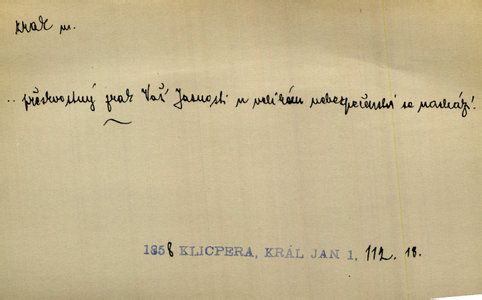 frak m.
.. překvostný frak Vaší Jasnosti u velikém nebezpečenství se nachází!
1858 KLICPERA, KRÁL JAN 1, 112. 18.